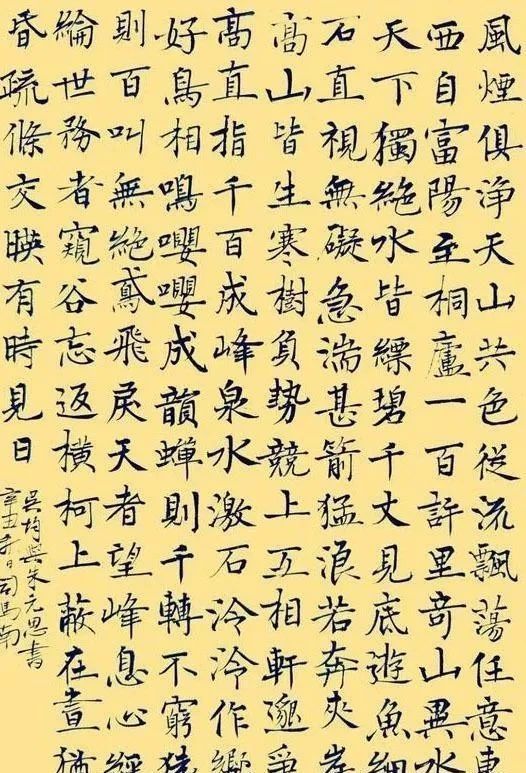 風煙俱浄天山共色從流飄蕩任意東
西自富陽至桐廬一百許里竒山異水
天下獨絶水皆縹碧千丈見底遊魚細
石直視無礙急湍甚箭猛浪若奔夾岸
髙山皆生寒樹負勢競上互相軒邈爭
髙直指千百成峰泉水激石泠泠作響
好鳥相鳴嚶嚶成韻蟬則千轉不窮猿
則百叫無絶鳶飛戾天者望峰息心經
綸世務者窺谷忘返橫柯上蔽在晝猶
昏疏條交暎有時見日
吳均與朱元思書
辛丑年日司馬南